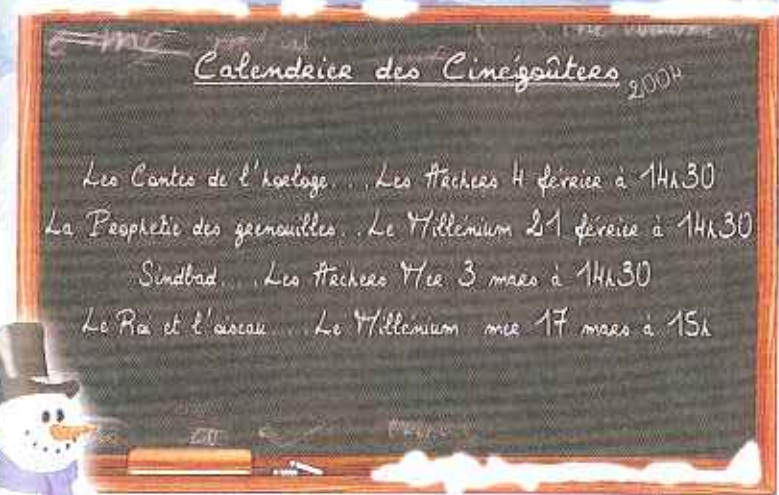 Calendrier des Cinégoûters 2004
Les Contes de l'horloge... Les Archers 4 février à 14h30
La Prophétie des grenouilles.. Le Millénium 21 février à 14h30
Sindbad.... Les Archers Mer 3 mars à 14h30
Le Roi et l'oiseau.... Le Millénium mer 17 mars à 15h